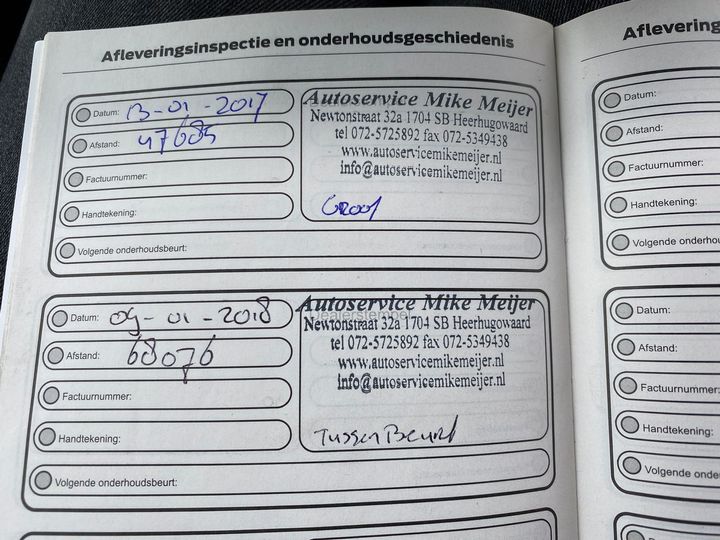 Afleveringsinspectie en onderhoudsgeschiedenis
Datum: 13-01-2017
Afstand: 47685
Factuurnummer:
Handtekening:
Volgende onderhoudsbeurt:
Autoservice Mike Meijer
Newtonstraat 32a 1704 SB Heerhugowaard
tel 072-5725892 fax 072-5349438
www.autoservicemikemeijer.nl
info@autoservicemikemeijer.nl
Groot
Datum: 09-01-2018
Afstand: 68076
Factuurnummer:
Handtekening:
Volgende onderhoudsbeurt:
Autoservice Mike Meijer
Dealerstempel
Newtonstraat 32a 1704 SB Heerhugowaard
tel 072-5725892 fax 072-5349438
www.autoservicemikemeijer.nl
info@autoservicemikemeijer.nl
TussenBeurt
Aflevering
Datum:
Afstand:
Factuurnummer:
Handtekening:
Volgende onderhou
Datum:
Afstand:
Factuurnummer:
Handtekening:
Volgende onde